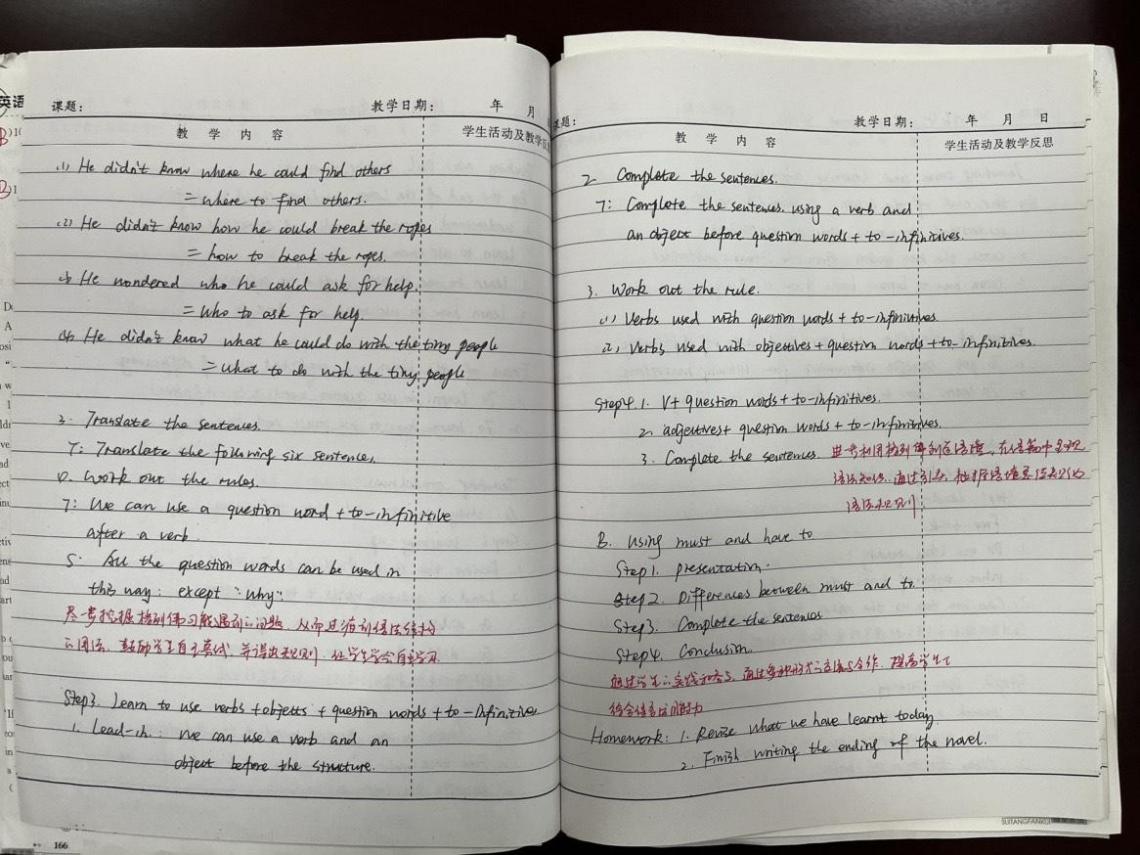 英语
课题：
教学日期：
年 月
教 学 内 容
学生活动及教学反
(1) He didn't know where he could find others
= where to find others.
(2) He didn't know how he could break the ropes
= how to break the ropes.
(3) He wondered who he could ask for help.
= who to ask for help.
(4) He didn't know what he could do with the tiny people
= what to do with the tiny people
3. Translate the sentences.
T: Translate the following six sentence.
4. Work out the rules.
T: We can use a question word + to-infinitive
after a verb.
S: All the question words can be used in
this way: except "why".
进一步挖掘格列佛可能遇到的问题，从而进行到语法结构
的用法，鼓励学生自主尝试，并得出规则，让学生学会自主学习.
Step3. Learn to use verbs + objects + question words + to-Infinitives
1. Lead-in: We can use a verb and an
object before the structure.
166
题：
教学日期： 年 月 日
教 学 内 容
学生活动及教学反思
2. Complete the sentences.
T: Complete the sentences using a verb and
an object before question words + to-infinitives.
3. Work out the rule.
(1) Verbs used with question words + to-infinitives
(2) Verbs used with objectives + question words + to-infinitives.
Step4. 1. V+ question words + to-infinitives.
2. adjectives + question words + to-infinitives.
3. Complete the sentences. 进一步利用格列佛创造语境，在语篇中呈现
语法知识，通过引导，根据语境
语法规则
B. Using must and have to
Step1. presentation.
Step2. Differences between must and to.
Step3. Complete the sentences
Step4. Conclusion.
通过学生的实践和参与，通过多种形式的交流与合作，提高学生的
综合语言运用能力
Homework: 1. Revise what we have learnt today.
2. Finish writing the ending of the novel.
SUITANGFANKUI